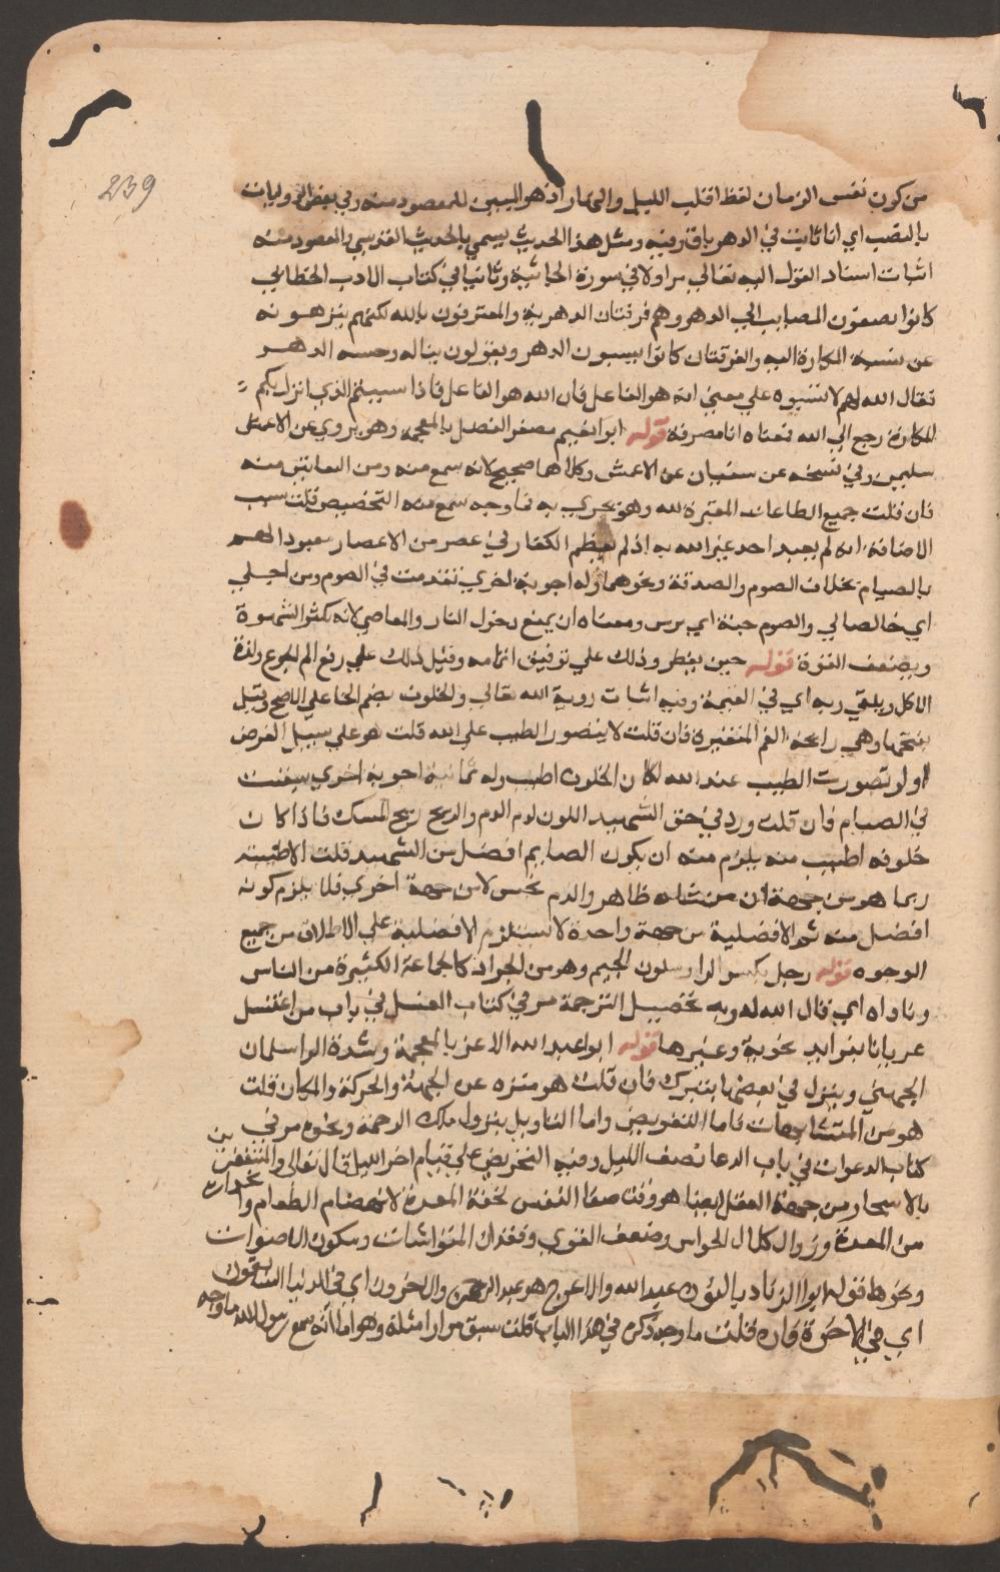 239
من كون نفس الزمان لفظ اقلب الليل والنهار اذ هو المبين للمقصود منه وفي بعض الروايات
بالنصب اي انا ثابت في الدهر باق فيه ومثل هذا الحديث يسمي بالحديث القدسي والمقصود منه
اثبات اسناد القول اليه تعالي مر اولا في سورة الجاثية وثانيا في كتاب الادب الخطابي
كانوا يضيفون المصايب الي الدهر وهم فرقتان الدهرية والمعترفون بالله لكنهم ينزهونه
عن نسبة المكارة اليه والفرقتان كانوا يسبون الدهر ويقولون تبا له وخيبه الدهر
فقال الله لهم لا تسبوه علي معني انه هو الفاعل فان الله هو الفاعل فاذا سببتم الذي انزل بكم
المكاره رجع الي الله فمعناه انا مصرفه قوله ابو نعيم مصغر الفضل بالمعجمة وهو يروي عن الاعمش
سليمن وفي نسخه عن سفيان عن الاعمش وكلاهما صحيح لانه سمع منه ومن السفانين منه
فان قلت جميع الطاعات المعتبرة لله وهو يجزي به فما وجه التخصيص قلت سبب
الاضافة انه لم يعبد احد غير الله به اذ لم يعظم الكفار في عصر من الاعصار معبودا لهم
بالصيام بخلاف الصوم والصدقة ونحوهما وله اجوبة اخري تقدمت في الصوم ومن اجلي
اي خالصا لي والصوم جنة اي ترس ومعناه ان يمنع دخول النار والمعاصي لانه يكسر الشهوة
ويضعف القوة قوله حين يفطر وذلك علي توفيق اتمامه وقيل ذلك علي رفع الم الجوع ولذة
الاكل ويلقي ربه اي في القيمة وفيه اثبات روية الله تعالي والخلوف بضم الخا علي الاصح وقيل
بفتحها وهي رايحة الفم المتغيرة فان قلت لا يتصور الطيب علي الله قلت هو علي سبيل الفرض
او لو تصورت الطيب عند الله لكان الخلوف اطيب وله ثمانية اجوبة اخري سبقت
في الصيام فان قلت ورد في حق الشهيد اللون لوم الدم والريح ريح المسك فاذا كان
خلوفه اطيب منه يلزم منه ان يكون الصايم افضل من الشهيد قلت الاطيبية
ربما هو من جهة ان منشاه طاهر والدم نجس لا من جهة اخري فلا يلزم كونه
افضل منه ثم الافضلية من جهة واحدة لا يستلزم الافضلية علي الاطلاق من جميع
الوجوه قوله رجل بكسر الرا وسكون الجيم وهو من الجراد كالجماعة الكثيرة من الناس
وناداه اي قال الله له وبه تحصيل الترجمة مر في كتاب الغسل في باب من اغتسل
عريانا بفوايد نحوية وغيرها قوله ابو عبد الله الاغر بالمعجمة وشدة الرا سلمان
الجهني وينزل في بعضها يتنزل فان قلت هو منزه عن الجهة والحركة والمكان قلت
هو من المتشابهات فاما التفويض واما التاويل بنزول ملك الرحمة ونحوه مر في
كتاب الدعوات في باب الدعا نصف الليل وفيه التحريض علي قيام اخر الليل قال تعالي والمستغفرين
بالاسحار ومن جهة العقل ايضا هو وقت صفا النفس لخفة المعدة لانهضام الطعام وانحداره
من المعدة وزوال كلال الحواس وضعف القوي وفقدان المشوشات وسكون الاصوات
ونحوها قوله ابو الزناد بالنون عبد الله والاعرج هو عبد الرحمن والاخرون اي في الدنيا السابقون
اي في الاخرة فان قلت ما وجه ذكره في هذا الباب قلت سبق مرارا مثله وهو اما انه سمع رسول الله ما وجه